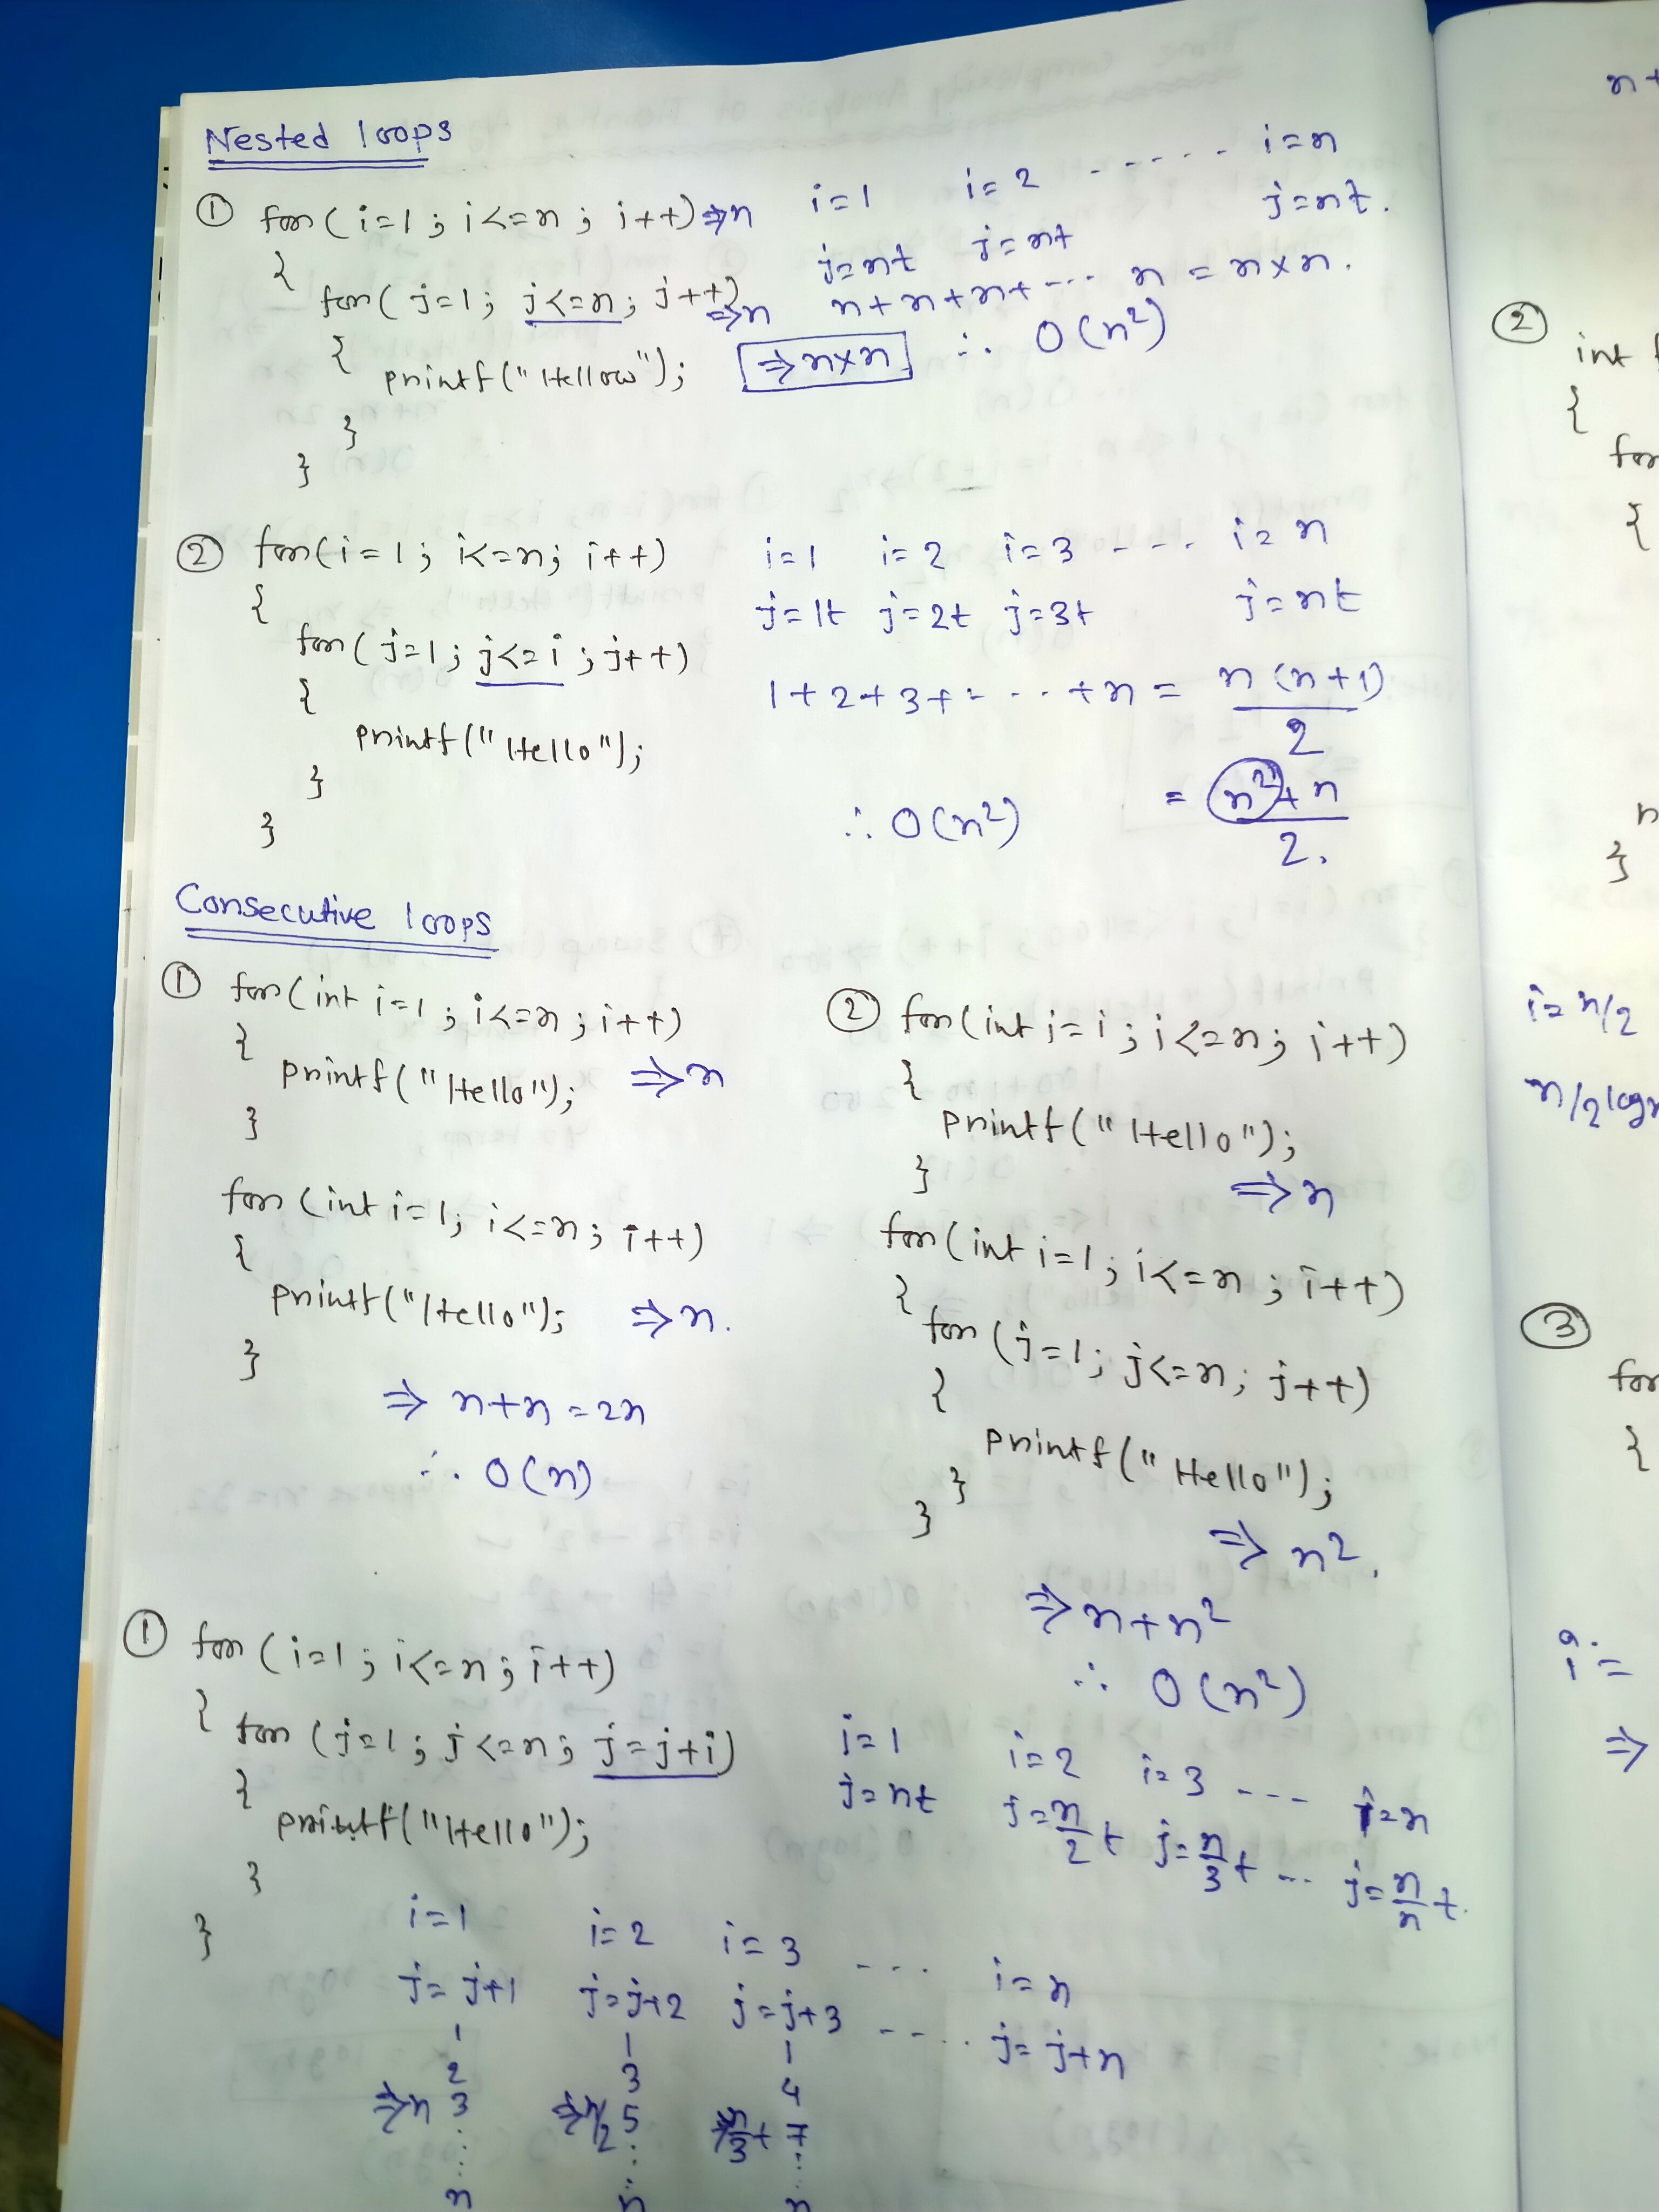 Nested loops
① for(i=1; i<=n; i++) ⇒n
{
for(j=1; j<=n; j++) ⇒n
{
printf("Hellow"); ⇒n×n
}
}
i=1 i=2 ----- i=n
j=nt j=nt j=nt.
n+n+n+... n = n×n.
∴ O(n²)
② for(i=1; i<=n; i++)
{
for(j=1; j<=i; j++)
{
printf("Hello");
}
}
i=1 i=2 i=3 ---- i=n
j=1t j=2t j=3t j=nt
1+2+3+-...+n = n(n+1)/2
= n²+n/2.
∴ O(n²)
Consecutive loops
① for(int i=1; i<=n; i++)
{
printf("Hello"); ⇒n
}
for(int i=1; i<=n; i++)
{
printf("Hello"); ⇒n.
}
⇒ n+n=2n
∴ O(n)
② for(int i=i; i<=n; i++)
{
printf("Hello");
}
⇒n
for(int i=1; i<=n; i++)
{
for(j=1; j<=n; j++)
{
printf("Hello");
}
}
⇒ n².
⇒n+n²
∴ O(n²)
① for(i=1; i<=n; i++)
{ for(j=1; j<=n; j=j+i)
{
printf("Hello");
}
}
i=1 i=2 i=3 --- i=n
j=nt j=n/2t j=n/3t ... j=n/nt.
i=1 i=2 i=3 --- i=n
j=j+1 j=j+2 j=j+3 ---. j=j+n
1 1 1
2 3 4
⇒n 3 ⇒n/2 5 ⇒n/3t 7
⋮ ⋮ ⋮
n n n
n+
②
int
{
for
{
}
i=n/2
n/2log
③
for
{
i=
⇒